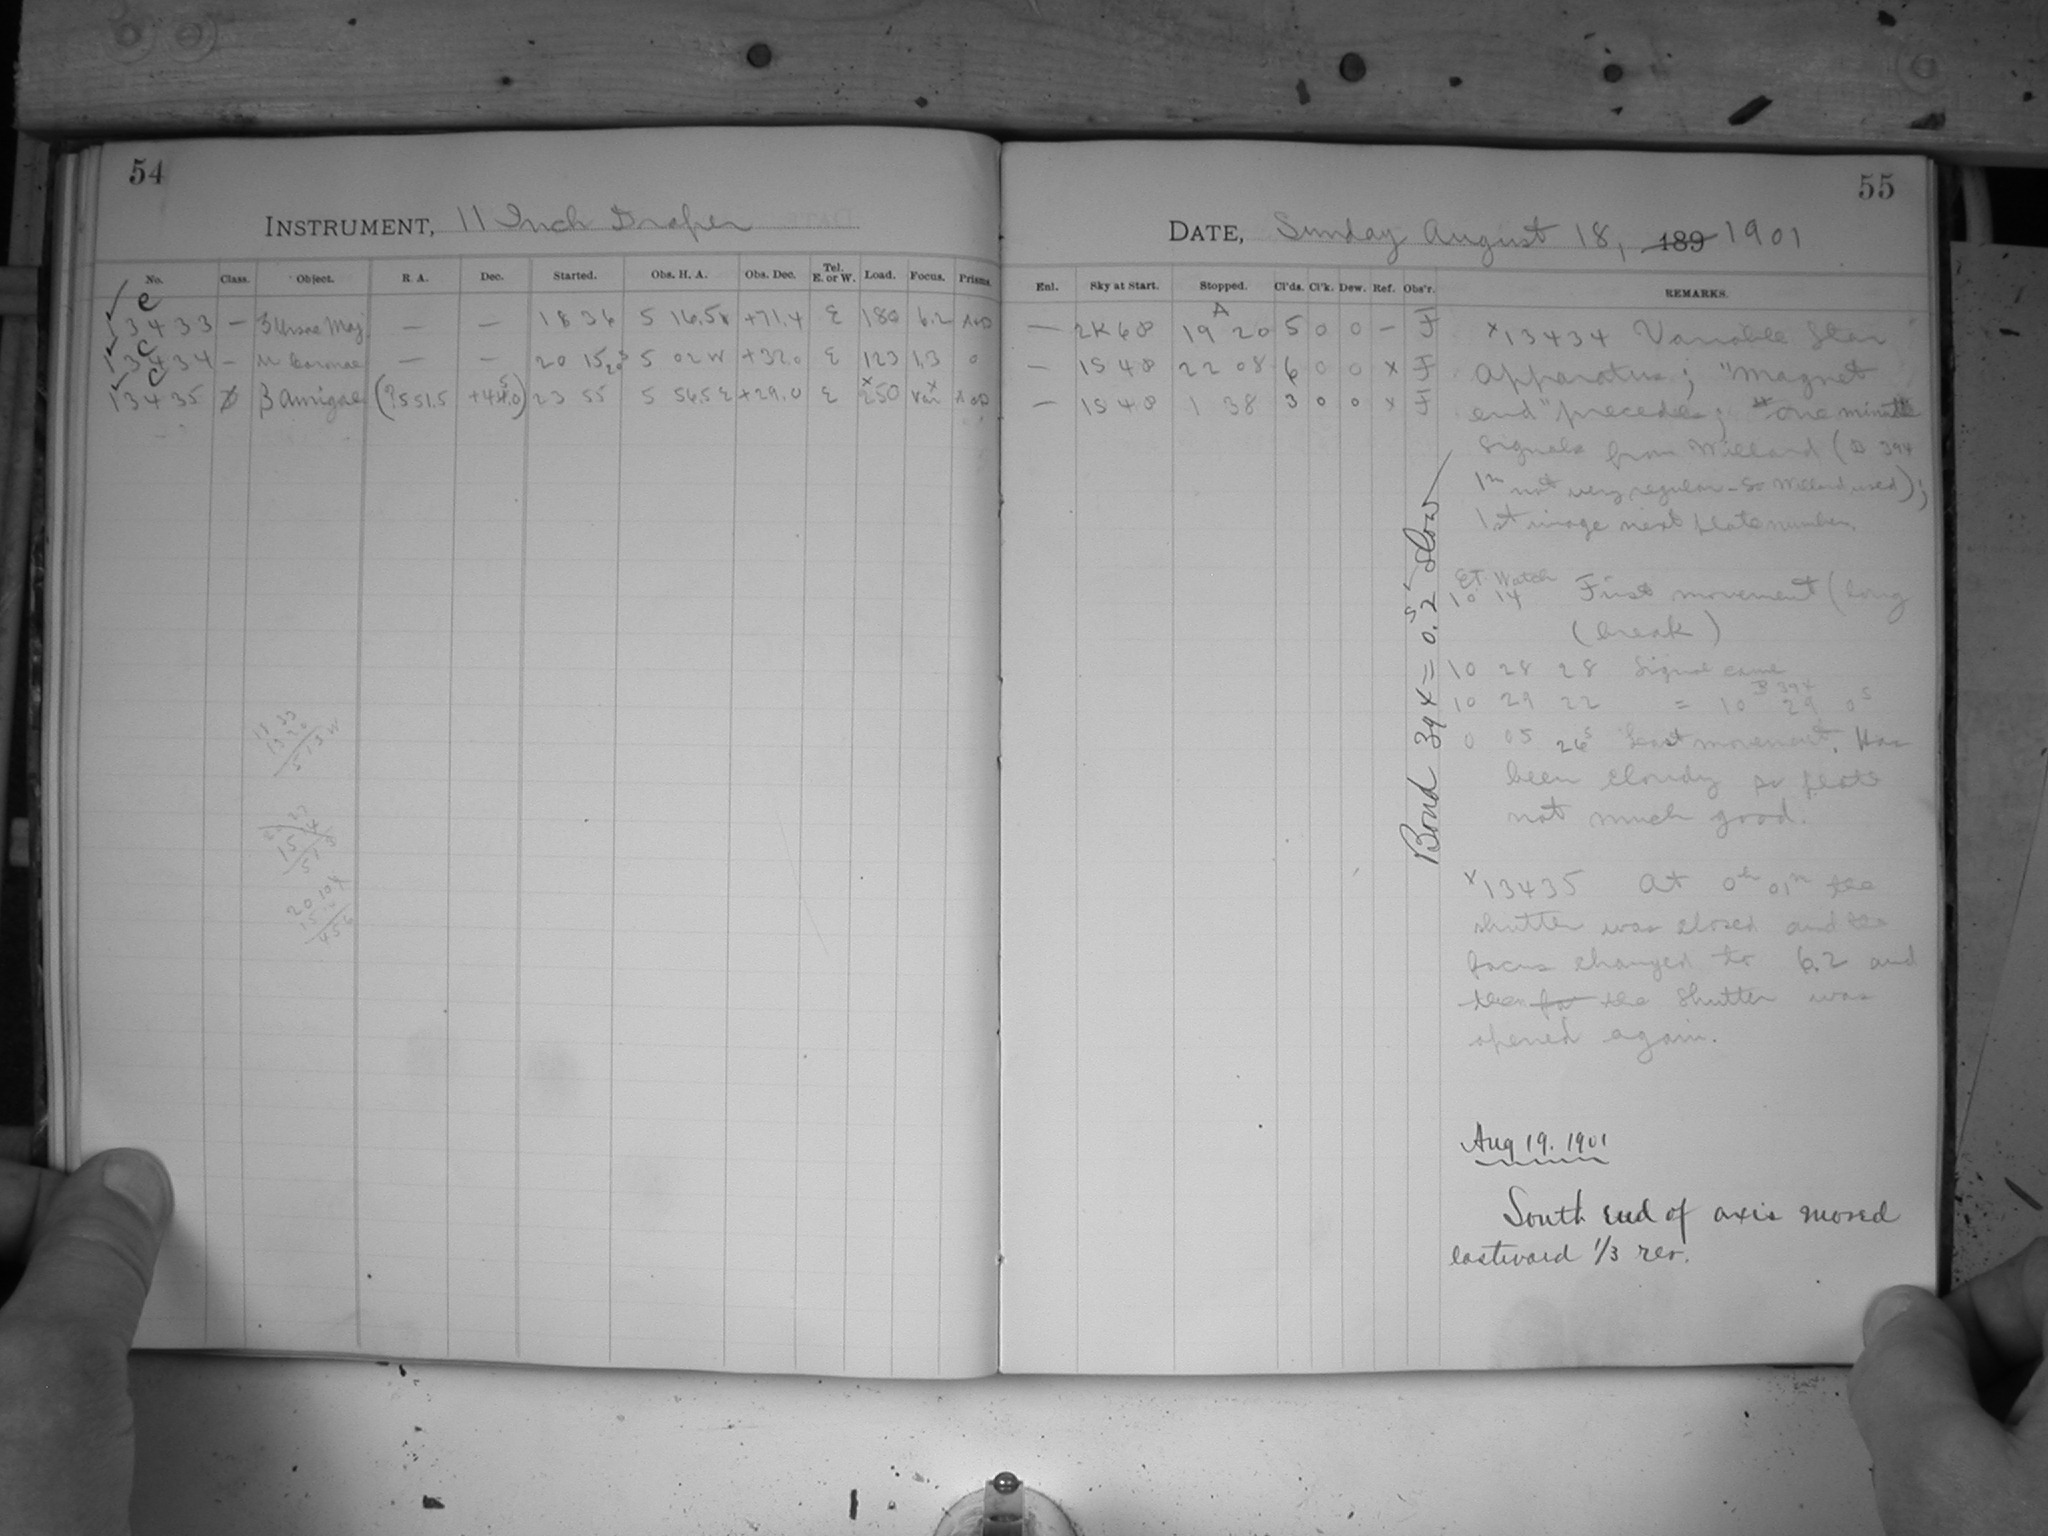 54
INSTRUMENT, 11 Inch Draper
No. Class. Object. R. A. Dec. Started. Obs. H. A. Obs. Dec. Tel. E. or W. Load. Focus. Prisms.
c
13433 — Ursae Maj. — — 18 36 5 16.5 +71.4 E 180 6.2
c
13434 — u Coronae — — 20 15 20s 5 02 W +32.0 E 123 1.3 0
c
13435 β Aurigae (5 51.5 23 55 5 56.5 E +29.0 E x250 Var x
55
DATE, Sunday August 18, 189 1901
Enl. Sky at Start. Stopped. Cl'ds. Cl'k. Dew. Ref. Obs'r. REMARKS.
A
— 2K68 19 20 5 0 0 — F
— 1S48 22 08 6 0 0 x F
— 1S48 1 38 3 0 0 x F
x13434 Variable Star
Apparatus; "Magnet
end" precedes; one minute
signals from Willard (B 394
1m not very regular - so Willard used);
1st image next plate number.
Bond 394 = 0.2s slow
E.T. Watch
10 14 First movement (long
(break)
10 28 28 Signal came
B 394
10 29 22 = 10 29 0s
0 05 26s Last movement. Has
been cloudy so plate
not much good.
x13435 At 0h 01m the
shutter was closed and the
focus changed to 6.2 and
then for the shutter was
opened again.
Aug 19. 1901
South end of axis moved
eastward 1/3 rev.